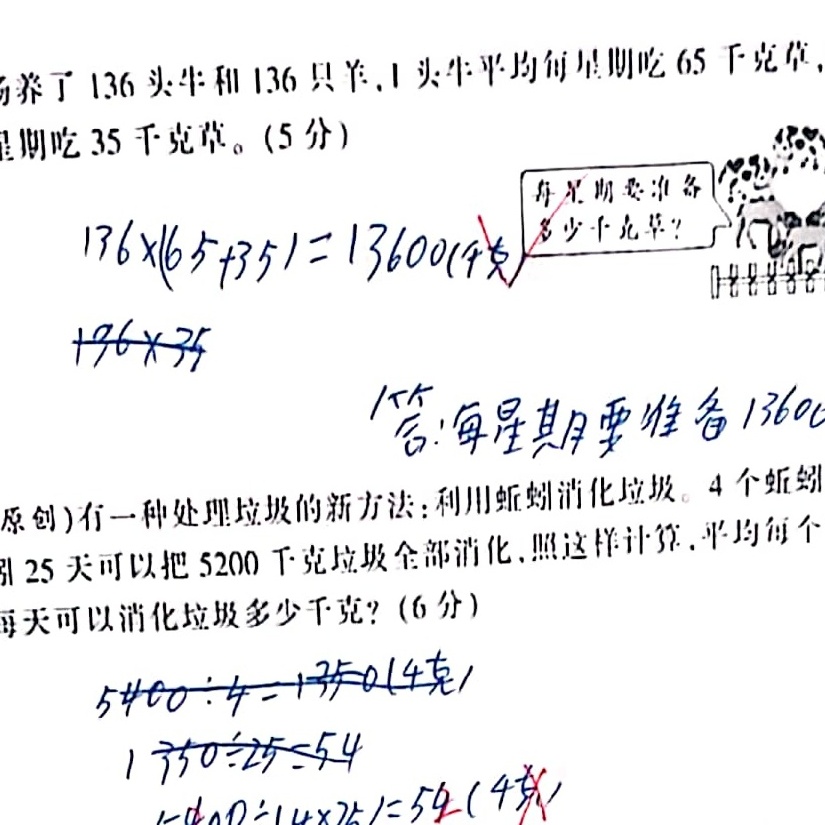 养了 136 头牛和 136 只羊,1 头牛平均每星期吃 65 千克草,
星期吃 35 千克草。(5 分)
每星期要准备
多少千克草?
136×(65+35)=13600(千克)
136×35
答:每星期要准备 1360
原创)有一种处理垃圾的新方法:利用蚯蚓消化垃圾。4 个蚯蚓
25 天可以把 5200 千克垃圾全部消化,照这样计算,平均每个
每天可以消化垃圾多少千克? (6 分)
5400÷4=1350(千克)
1350÷25=54
÷(4×25)=52(千克)